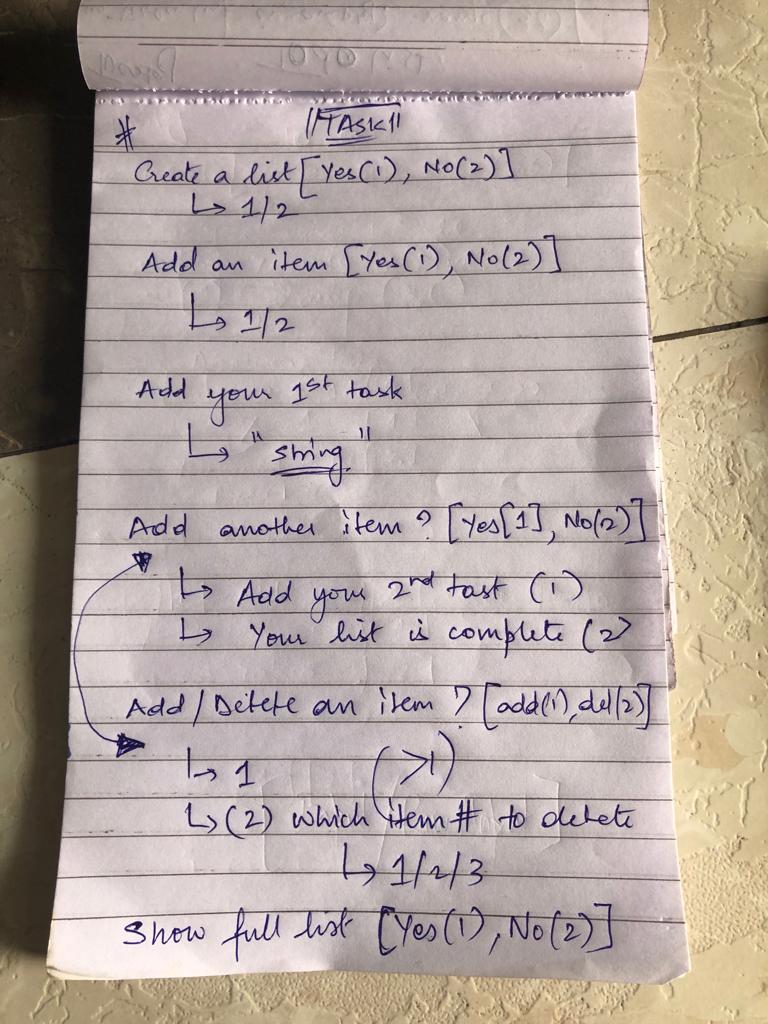 # "TASK"
Create a list [Yes(1), No(2)]
↳ 1/2
Add an item [Yes(1), No(2)]
↳ 1/2
Add your 1st task
↳ "string"
Add another item? [Yes[1], No(2)]
↳ Add your 2nd tast (1)
↳ Your list is complete (2)
Add/Delete an item? [add(1), del(2)]
↳ 1 (>1)
↳ (2) which item # to delete
↳ 1/2/3
Show full list [Yes(1), No(2)]